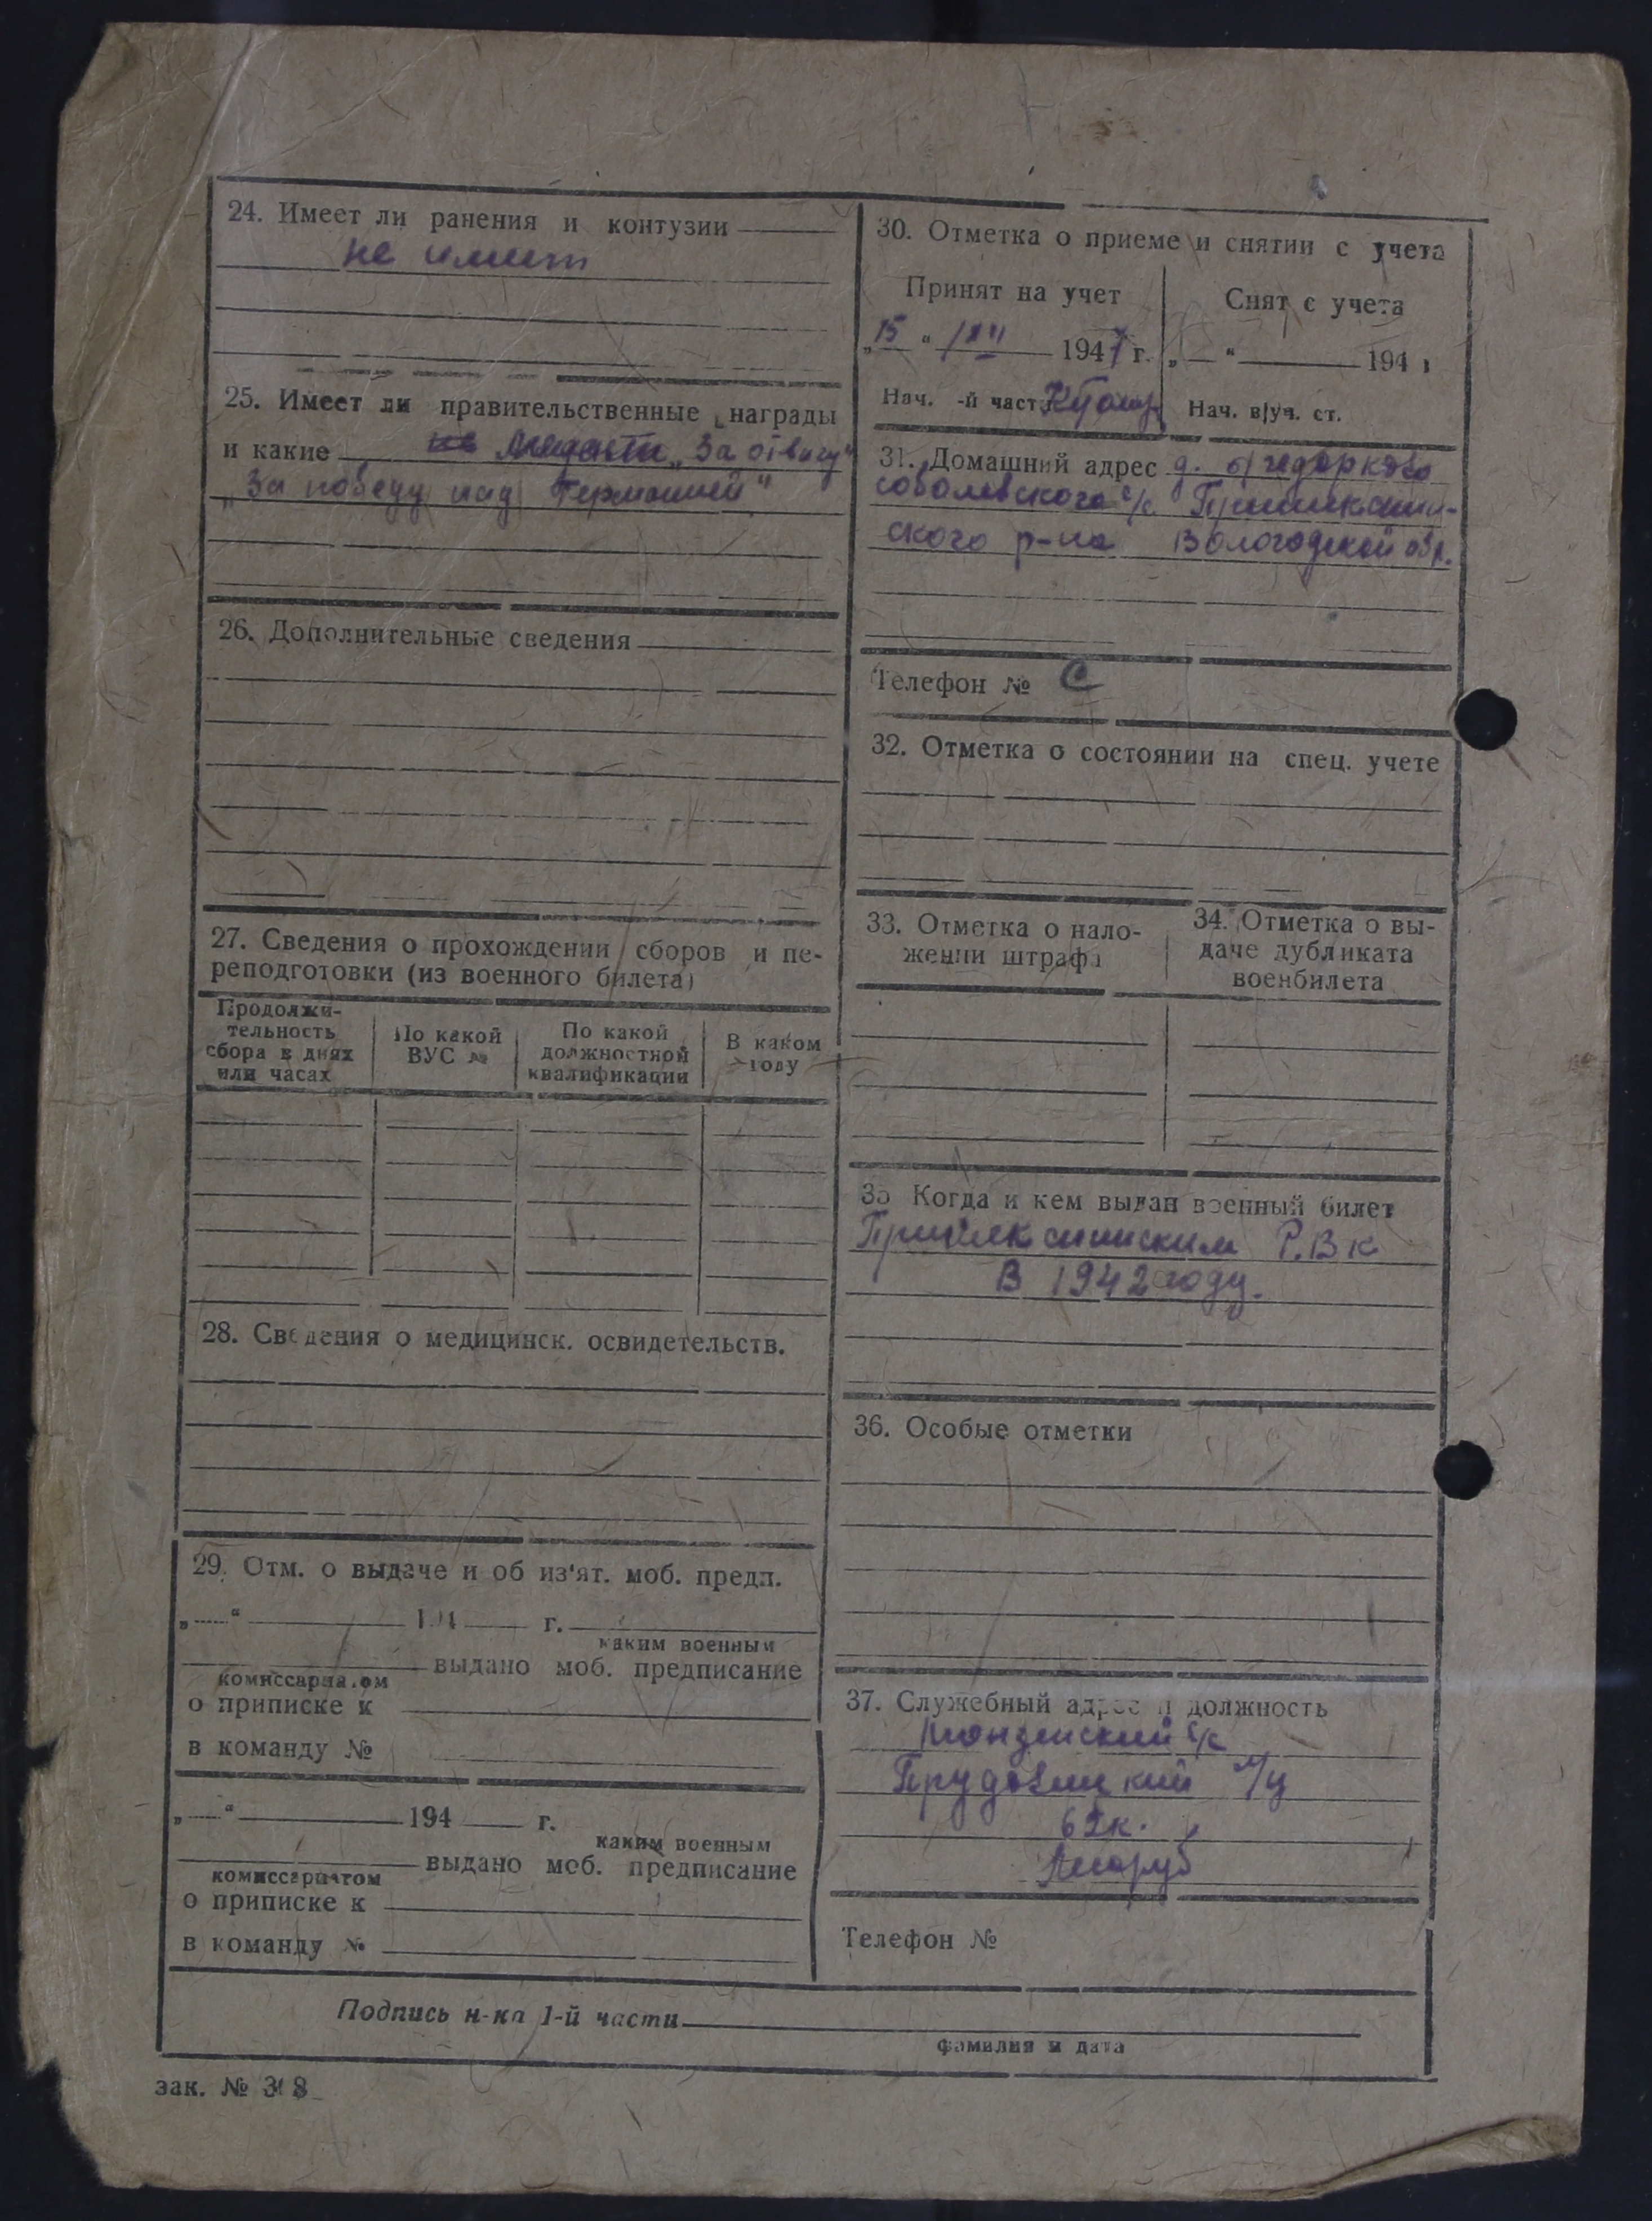 24. Имеет ли ранения и контузии
не имеет
25. Имеет ли правительственные награды
и какие Медали „За отвагу"
„За победу над Германией"
26. Дополнительные сведения
27. Сведения о прохождении сборов и пе-
реподготовки (из военного билета)
Продолжи-
тельность
сбора в днях
или часах
По какой
ВУС №
По какой
должностной
квалификации
В каком
году
28. Сведения о медицинск. освидетельств.
29. Отм. о выдаче и об из'ят. моб. предп.
„ " 194 г.
каким военным
выдано моб. предписание
комиссариатом
о приписке к
в команду №
„ " 194 г.
каким военным
выдано моб. предписание
комиссариатом
о приписке к
в команду №
30. Отметка о приеме и снятии с учета
Принят на учет
„15" 1947 г.
Нач. -й част.
Снят с учета
„ " 194 г
Нач. в/уч. ст.
31. Домашний адрес д.
Соболевского с/с
ского р-на Вологодской обл.
Телефон №
32. Отметка о состоянии на спец. учете
33. Отметка о нало-
жении штрафа
34. Отметка о вы-
даче дубликата
военбилета
35 Когда и кем выдан военный билет
Р.В.К
В 1942 году.
36. Особые отметки
37. Служебный адрес и должность
с/с
Лесоруб
Телефон №
Подпись н-ка 1-й части
фамилия и дата
зак. № 318